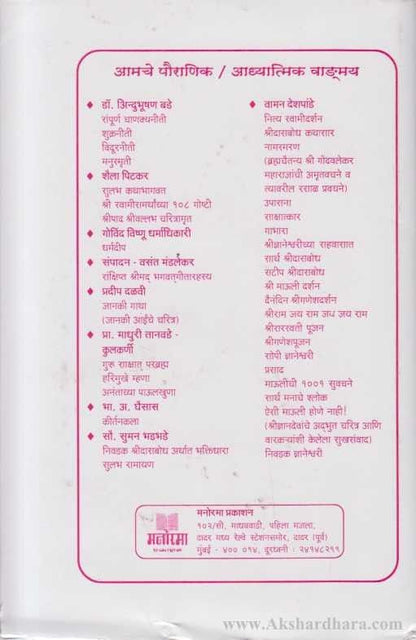 आमचे पौराणिक / आध्यात्मिक वाङ्मय
♦ डॉ. अिन्दुभूषण बडे
संपूर्ण चाणक्यनीती
शुक्रनीती
विदूरनीती
मनुस्मृती
♦ शैला पिटकर
सुलभ कथाभागवत
श्री स्वामीसमर्थांच्या १०८ गोष्टी
श्रीपाद श्रीवल्लभ चरित्रामृत
♦ गोविंद विष्णू धर्माधिकारी
धर्मदीप
♦ संपादन - वसंत मंडलेकर
संक्षिप्त श्रीमद् भगवतगीतारहस्य
♦ प्रदीप दळवी
जानकी गाथा
(जानकी आईंचे चरित्र)
♦ प्रा. माधुरी तानवडे -
कुलकर्णी
गुरू साक्षात् परब्रह्म
हरिमुखे म्हणा
अनंताच्या पाऊलखुणा
♦ भा. अ. घैसास
कीर्तनकला
♦ सौ. सुमन भडभडे
निवडक श्रीदासबोध अर्थात भक्तिधारा
सुलभ रामायण
♦ वामन देशपांडे
नित्य स्वामीदर्शन
श्रीदासबोध कथासार
नामस्मरण
(ब्रह्मचैतन्य श्री गोंदवलेकर
महाराजांची अमृतवचने व
त्यावरील रसाळ प्रवचने)
उपासना
साक्षात्कार
गाभारा
श्रीज्ञानेश्वरीच्या सहवासात
सार्थ श्रीदासबोध
सटीप श्रीदासबोध
श्री माऊली दर्शन
दैनंदिन श्रीगणेशदर्शन
श्रीराम जय राम जय जय राम
श्रीसरस्वती पूजन
श्रीगणेशपूजन
सोपी ज्ञानेश्वरी
प्रसाद
माऊलीची १००१ सुवचने
सार्थ मनाचे श्लोक
ऐसी माऊली होणे नाही!
(श्रीज्ञानदेवांचे अद्भुत चरित्र आणि
वारकऱ्यांशी केलेला सुखसंवाद)
निवडक ज्ञानेश्वरी
मनोरमा
मनोरमा प्रकाशन
१०२/सी, माधववाडी, पहिला मजला,
दादर मध्य रेल्वे स्टेशनसमोर, दादर (पूर्व)
मुंबई - ४०० ०१४, दूरध्वनी : २४१४८२११
www.Akshardhara.com